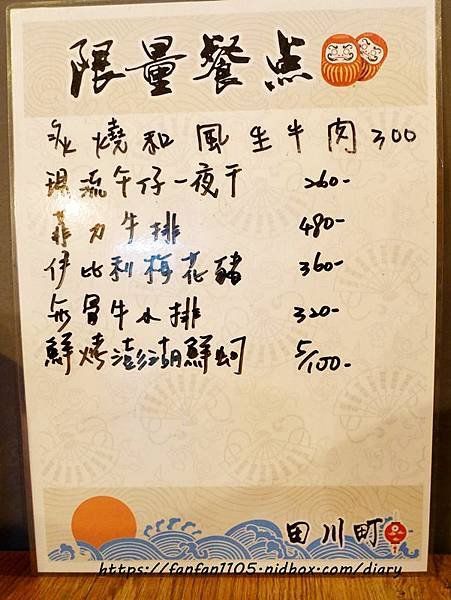 限量餐点
炙燒和風生牛肉300
現流午仔一夜干 260-
菲力牛排 480-
伊比利梅花豬 360-
無骨牛小排 320-
鮮烤澎湖鮮蚵 5/100-
田川町
https://fanfan1105.nidbox.com/diary